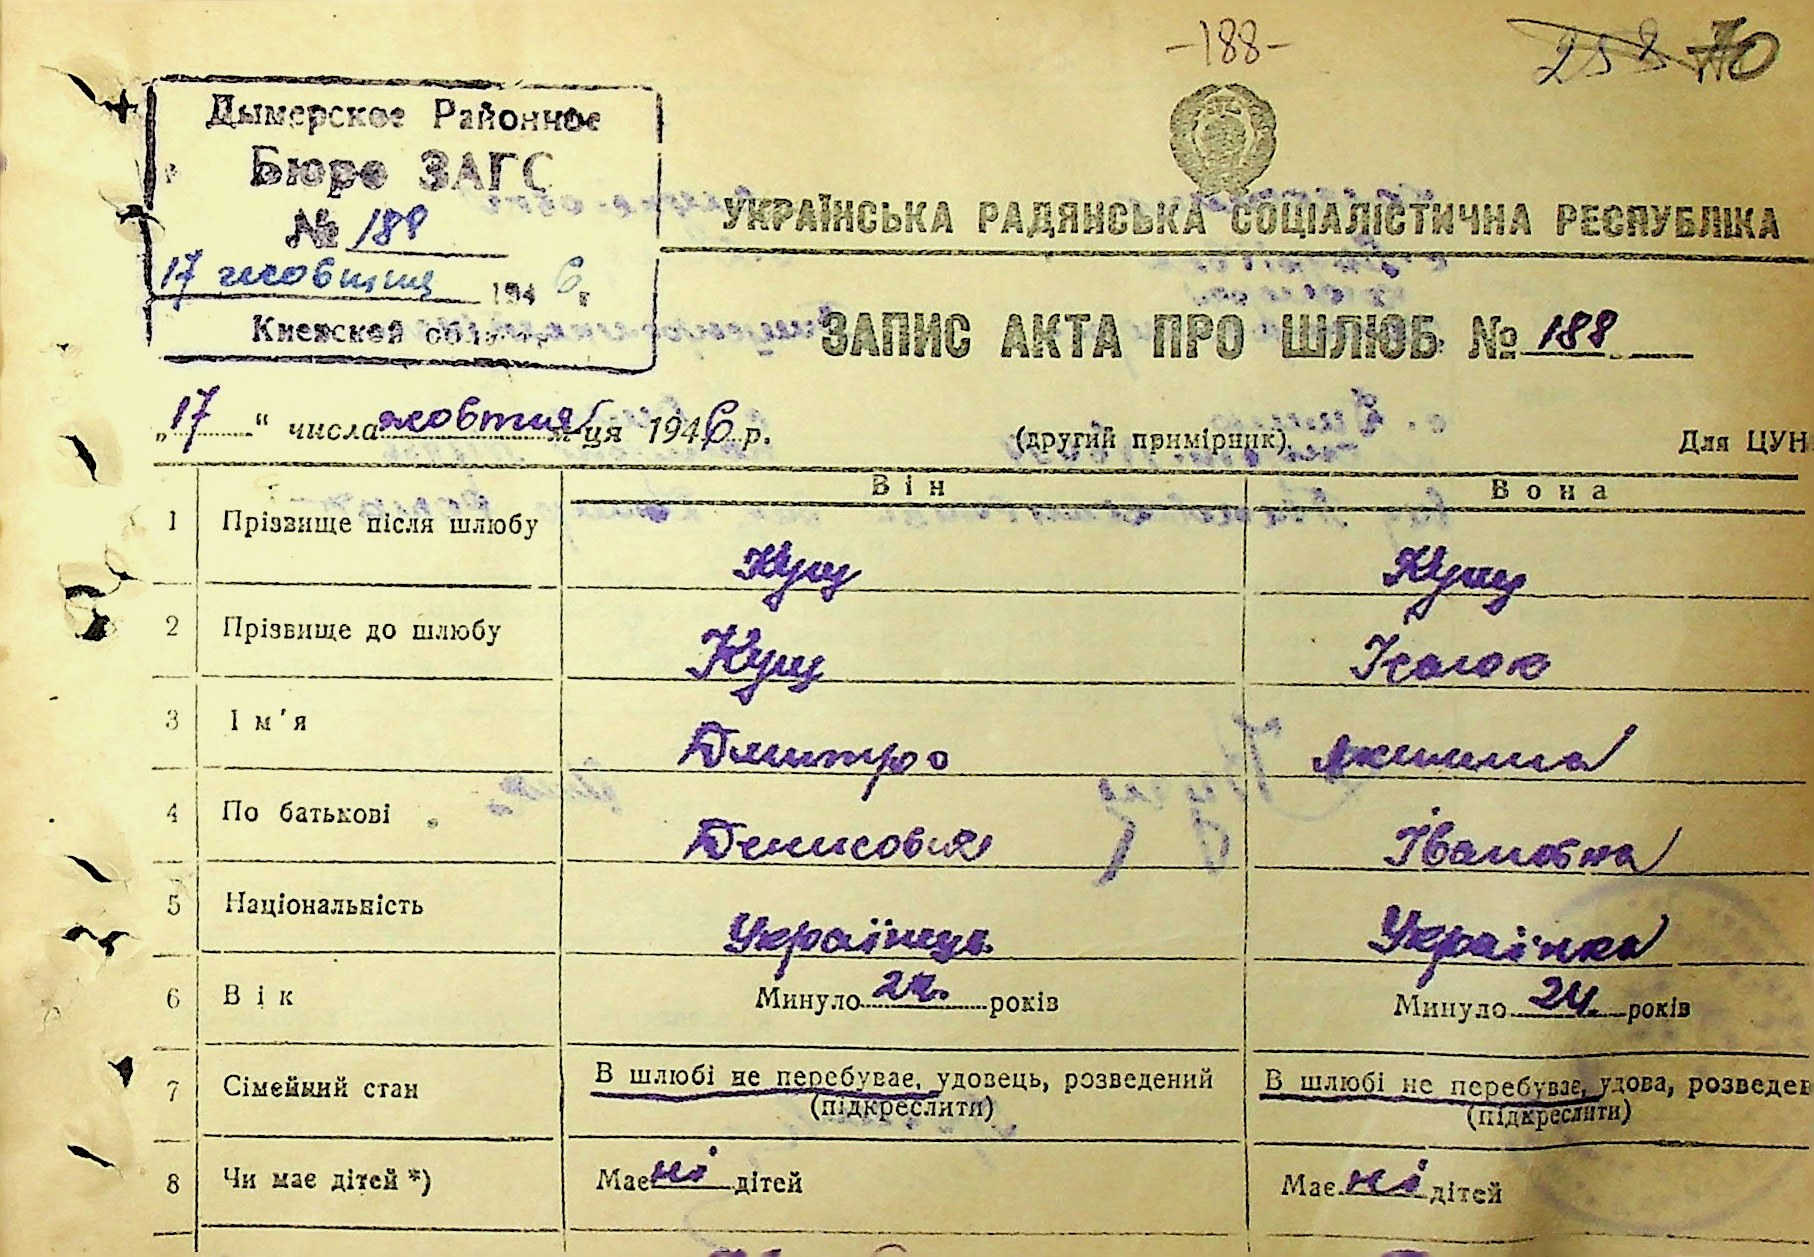 -188-
258 70
Дымерское Районное
Бюро ЗАГС
№ 188
17 жовтня 1946 г.
Киевской област
УКРАЇНСЬКА РАДЯНСЬКА СОЦІАЛІСТИЧНА РЕСПУБЛІКА
ЗАПИС АКТА ПРО ШЛЮБ № 188
„17“ числа жовтня м-ця 1946 р.
(другий примірник)
Для ЦУН
Він Вона
1 Прізвище після шлюбу Кущ Кущ
2 Прізвище до шлюбу Кущ
3 Ім'я Дмитро Акилина
4 По батькові Денисович Івановна
5 Національність Українець Українка
6 Вік Минуло 24. років Минуло 24. років
7 Сімейний стан В шлюбі не перебуває, удовець, розведений В шлюбі не перебуває, удова, розведен
(підкреслити) (підкреслити)
8 Чи має дітей *) Має ні дітей Має ні дітей